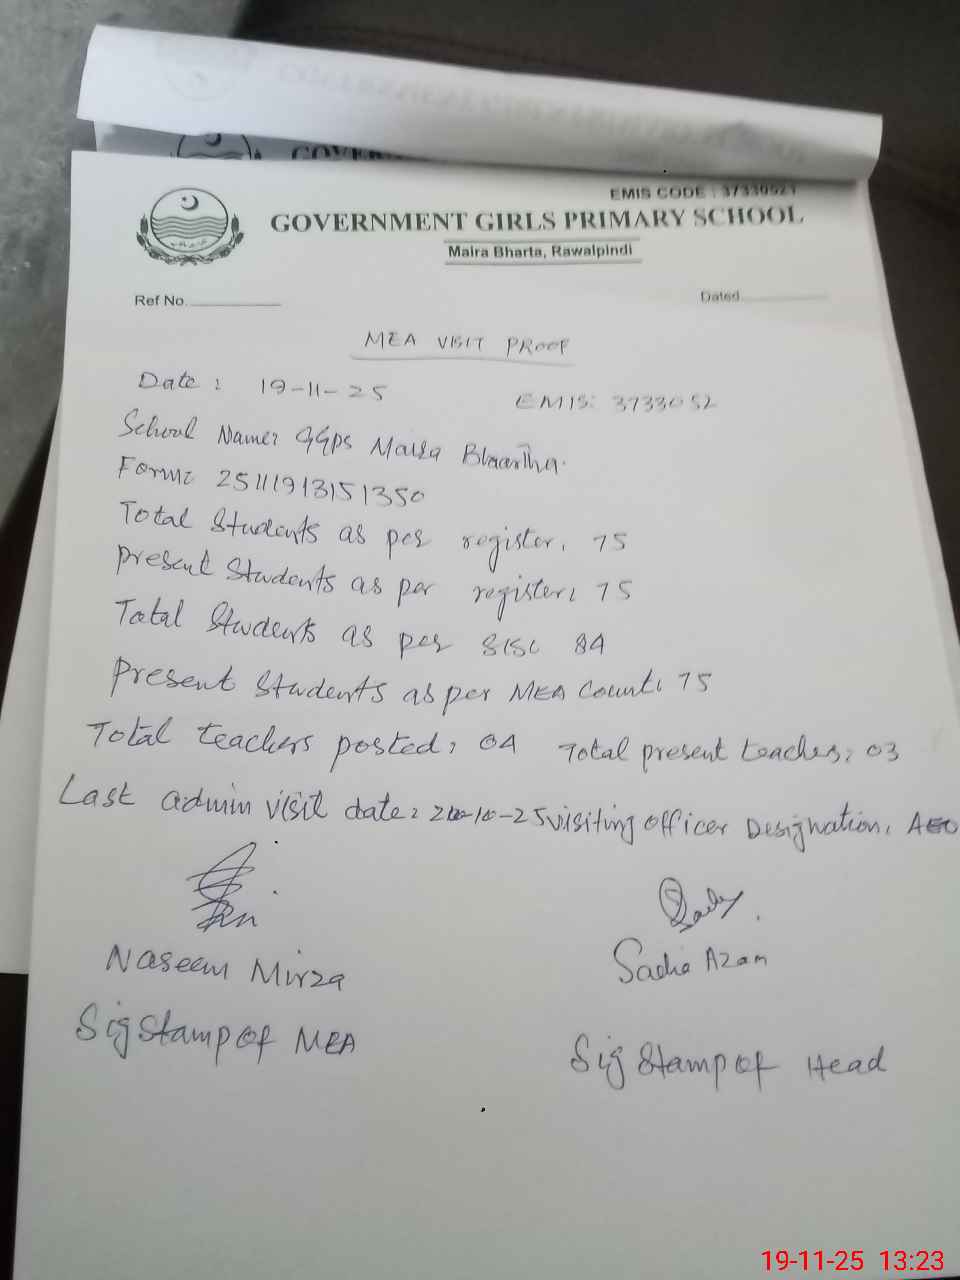 EMIS CODE : 37330521
GOVERNMENT GIRLS PRIMARY SCHOOL
Maira Bharta, Rawalpindi
Ref No.
Dated
MEA VISIT PROOF
Date : 19-11-25
EMIS: 3733052
School Name: GGPS Maira Bhaartha.
Form: 2511191315 1350
Total Students as per register. 75
Present Students as per register: 75
Total Students as per SISC 84
Present Students as per MEA Count: 75
Total teachers posted: 04 Total present teaches: 03
Last admin visit date: -10-25 visiting officer Designation: AEO
Naseem Mirza
Sadia Azam
Sig Stamp of MEA
Sig Stamp of Head
19-11-25 13:23